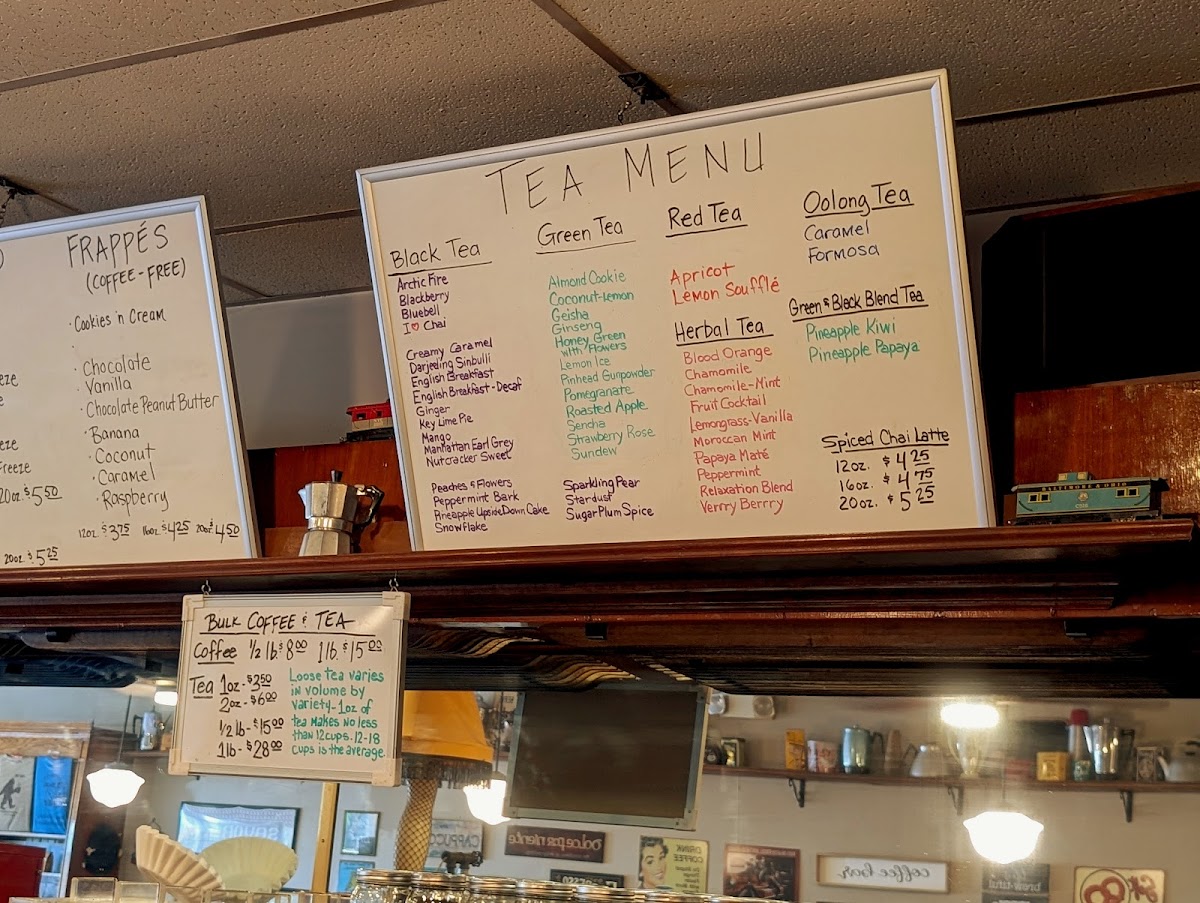 FRAPPÉS
(COFFEE-FREE)
· Cookies 'n Cream
· Chocolate
· Vanilla
· Chocolate Peanut Butter
· Banana
· Coconut
· Caramel
· Raspberry
12oz. $3.75 16oz $4.25 20oz $4.50
Freeze
20oz $5.50
20oz. $5.25
TEA MENU
Black Tea
Arctic Fire
Blackberry
Bluebell
I ♡ Chai
Creamy Caramel
Darjeeling Sinbulli
English Breakfast
English Breakfast-Decaf
Ginger
Key Lime Pie
Mango
Manhattan Earl Grey
Nutcracker Sweet
Peaches & Flowers
Peppermint Bark
Pineapple Upside Down Cake
Snowflake
Green Tea
Almond Cookie
Coconut-Lemon
Geisha
Ginseng
Honey Green
with Flowers
Lemon Ice
Pinhead Gunpowder
Pomegranate
Roasted Apple
Sencha
Strawberry Rose
Sundew
Sparkling Pear
Stardust
Sugar Plum Spice
Red Tea
Apricot
Lemon Soufflé
Herbal Tea
Blood Orange
Chamomile
Chamomile-Mint
Fruit Cocktail
Lemongrass-Vanilla
Moroccan Mint
Papaya Maté
Peppermint
Relaxation Blend
Verrry Berrry
Oolong Tea
Caramel
Formosa
Green & Black Blend Tea
Pineapple Kiwi
Pineapple Papaya
Spiced Chai Latte
12oz. $4.25
16oz. $4.75
20oz. $5.25
BALTIMORE & OHIO
BULK COFFEE & TEA
Coffee 1/2 lb. $8.00 1lb. $15.00
Tea 1oz - $3.50
2oz - $6.00
1/2 lb - $15.00
1lb - $28.00
Loose tea varies
in volume by
variety-1oz of
tea makes no less
than 12 cups. 12-18
cups is the average.
dolce far niente
CAPPUCC
DRINK
COFFEE
coffee bar